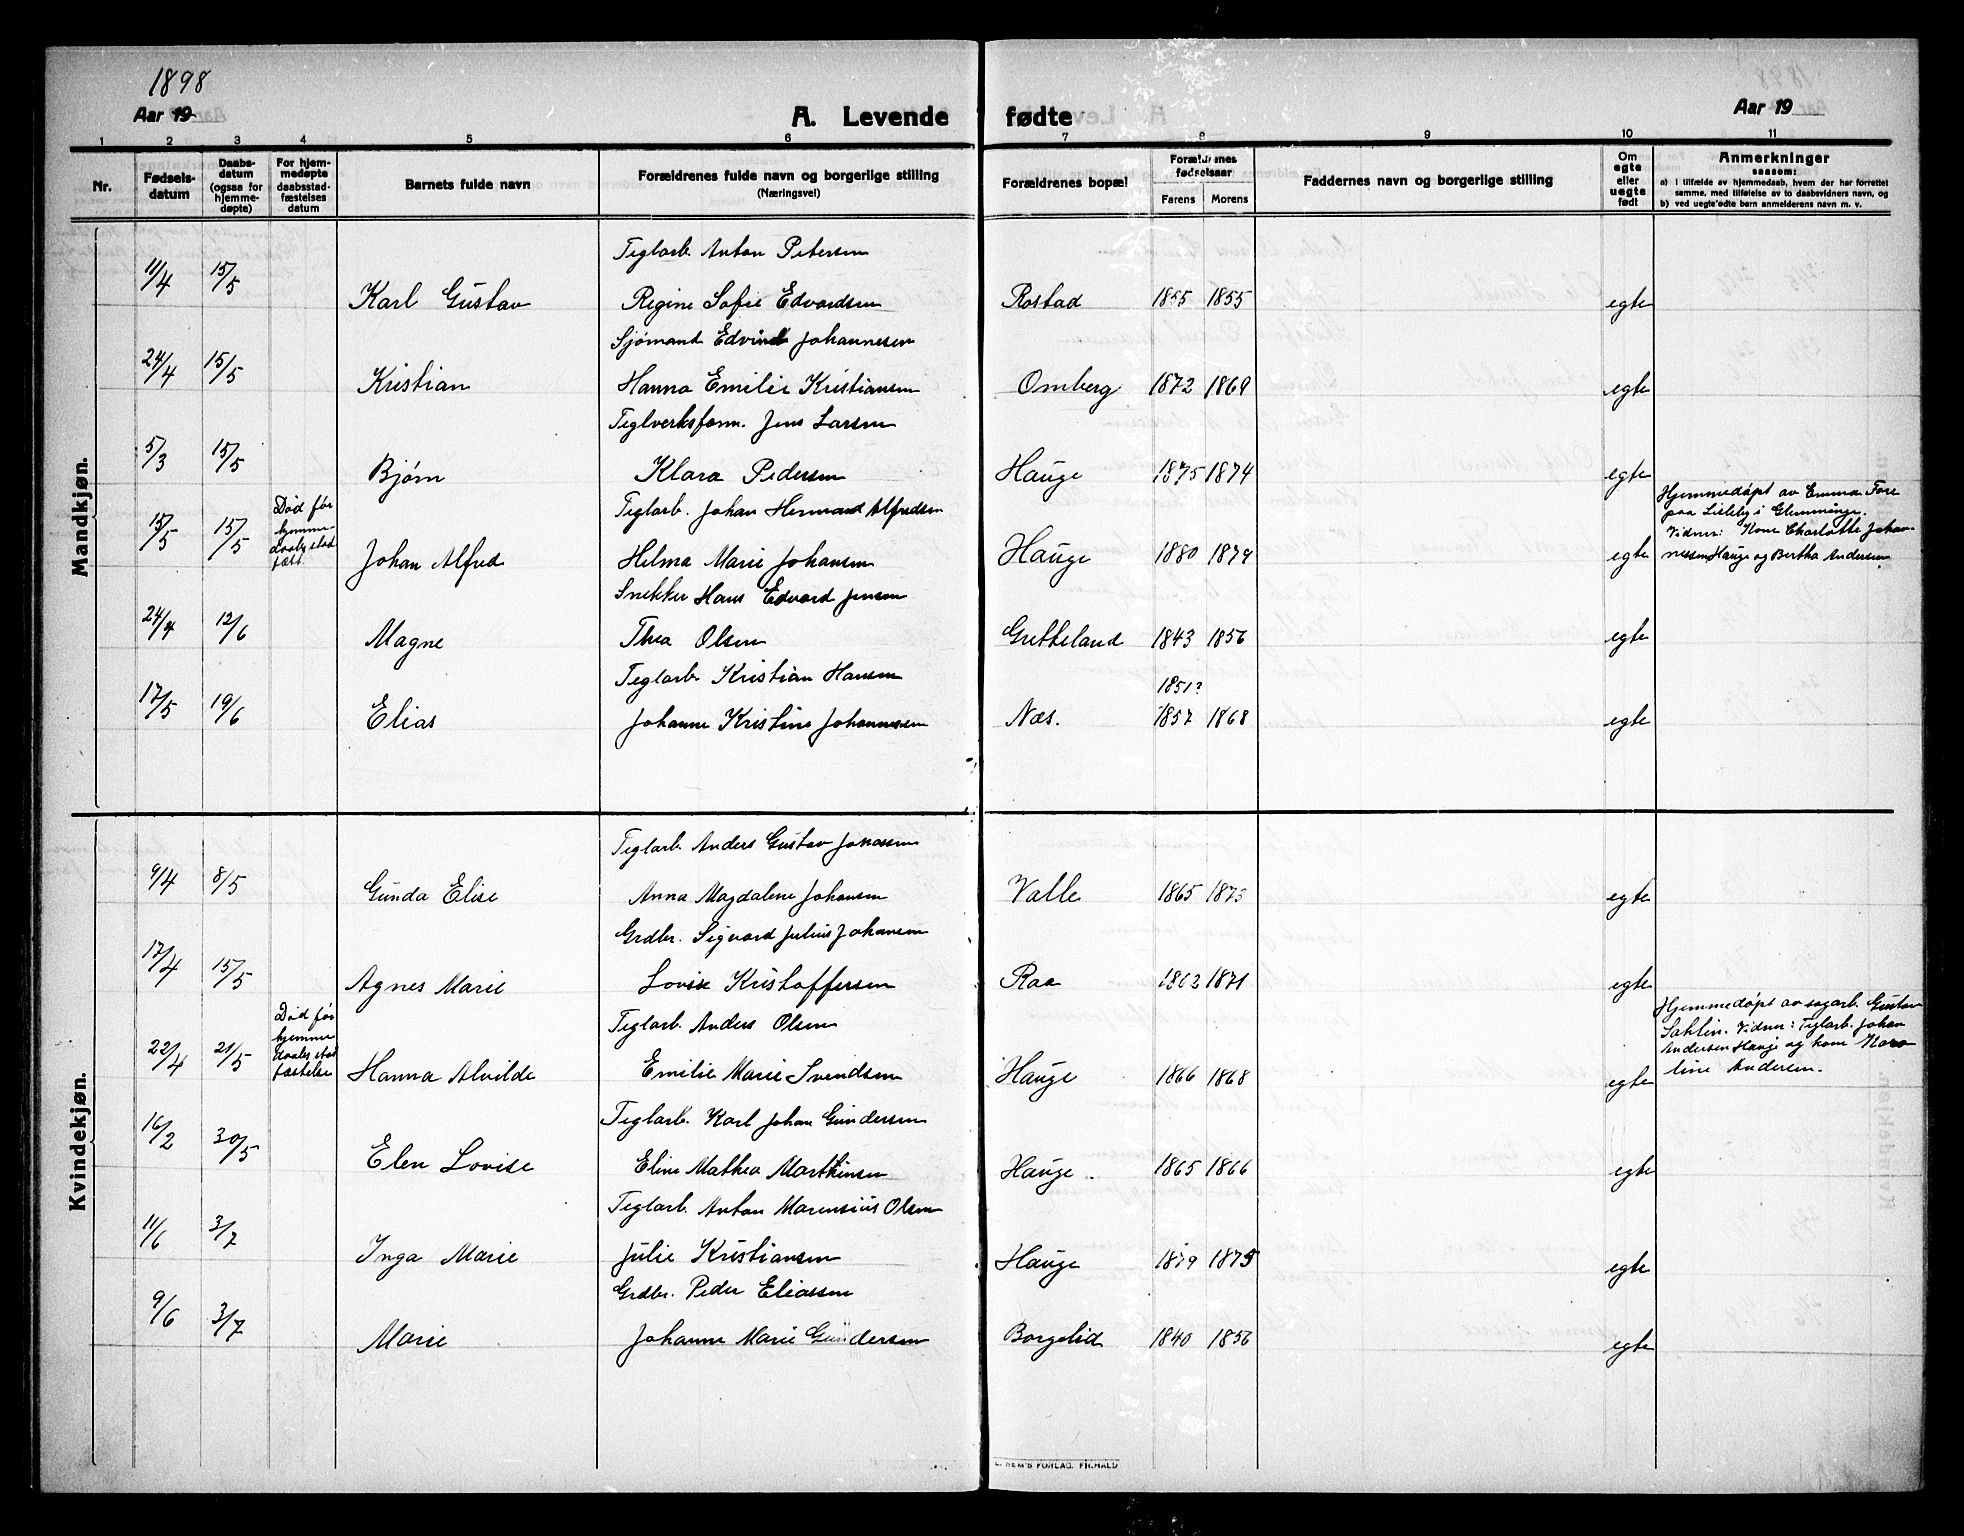 1898
Aar 19
A. Levende fødte
Aar 19
1 2 3 4 5 6 7 8 9 10 11
Nr.
Fødsels-
datum
Daabs-
datum
(ogsaa for
hjemme-
døpte)
For hjem-
medøpte
daabsstad-
fæstelses
datum
Barnets fulde navn
Forældrenes fulde navn og borgerlige stilling
(Næringsvei)
Forældrenes bopæl
Forældrenes
fødselsaar
Farens Morens
Faddernes navn og borgerlige stilling
Om
egte
eller
uegte
født
Anmerkninger
saasom:
a) i tilfælde av hjemmedaab, hvem der har forrettet
samme, med tilføielse av to daabsvidners navn, og
b) ved uegte fødte børn anmelderens navn m. v.
Mandkjøn.
Teglarb. Anton Petersen
11/4 15/5 Karl Gustav Regine Sofie Edvardsen Rostad 1855 1855 egte
Sjømand Edvind Johannesen
24/4 15/5 Kristian Hanna Emilie Kristiansen Omberg 1872 1869 egte
Teglverksform. Jens Larsen
5/3 15/5 Bjørn Klara Pedersen Hauge 1875 1874 egte
Teglarb. Johan Herman Alfredsen
15/5 15/5 Død før
hjemme-
daabsstad
fæst.
Johan Alfred Helma Marie Johansen Hauge 1880 1879 egte
Hjemmedøpt av Emma Fore
paa Lisleby i Glemminge.
Vidner: Kone Charlotte Johan-
nessen Hauge og Bertha Andersen.
Snekker Hans Edvard Jensen
24/4 12/6 Magne Thea Olsen Gretteland 1843 1856 egte
Teglarb. Kristian Hansen
1851?
17/5 19/6 Elias Johanne Kristine Johannesen Næs. 1857 1868 egte
Kvindekjøn.
Teglarb. Anders Gustav Jonassen
9/4 8/5 Gunda Elise Anna Magdalene Johansen Valle 1865 1873 egte
Grdbr. Sigvard Julius Johansen
17/4 15/5 Agnes Marie Lovise Kristoffersen Raa 1862 1871 egte
Teglarb. Anders Olsen
22/4 21/5 Død før
hjemme
daabsstad
fæstelse
Hanna Alvilde Emilie Marie Svendsen Hauge 1866 1868 egte
Hjemmedøpt av sagarb. Gustav
Sahlin. Vidner: Teglarb. Johan
Andersen Hauge og kone
line Andersen.
Teglarb. Karl Johan Gundersen
16/2 30/5 Elen Lovise Eline Mathea Marthinsen Hauge. 1865 1866 egte
Teglarb. Anton Marensius Olsen
11/6 3/7 Inga Marie Julie Kristiansen Hauge 1879 1875 egte
Grdbr. Peder Eliassen
9/6 3/7 Marie Johanne Marie Gundersen Borgelid 1840 1856 egte
FORLAG. FR.HALD